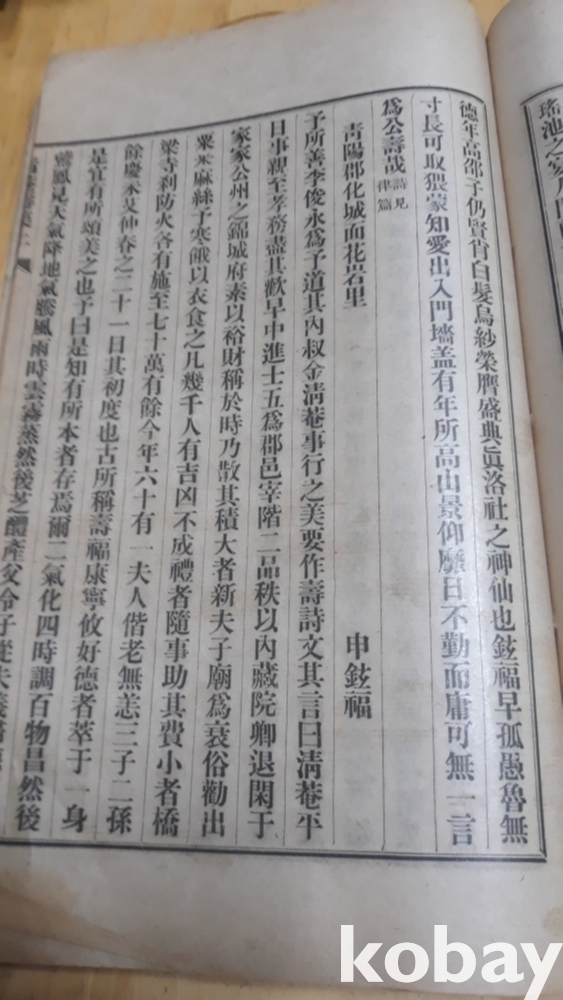 瑤池之
德年高邵子仍賢肯白髮烏紗榮膺盛典眞洛社之神仙也鉉福早孤愚魯無
寸長可取猥蒙知愛出入門墻盖有年所高山景仰靡日不勤而庸可無一言
爲公壽哉詩見律篇
靑陽郡化城面花岩里 申鉉福
予所善李俊永爲予道其內叔金淸菴事行之美要作壽詩文其言曰淸菴平
日事親至孝務盡其歡早中進士五爲郡邑宰階二品秩以內藏院卿退閑于
家家公州之錦城府素以裕財稱於時乃散其積大者新夫子廟爲衰俗勸出
粟米麻絲予寒餓以衣食之凡幾千人有吉凶不成禮者隨事助其費小者橋
梁寺刹防火各有施至七十萬有餘今年六十有一夫人偕老無恙三子二孫
餘慶未艾仲春之二十一日其初度也古所稱壽福康寧攸好德者萃于一身
是宜有所頌美之也予曰是知有所本者存焉爾二氣化四時調百物昌然後
鳳見天氣降地氣騰風雨時雲
然後芝醴產父令子從夫